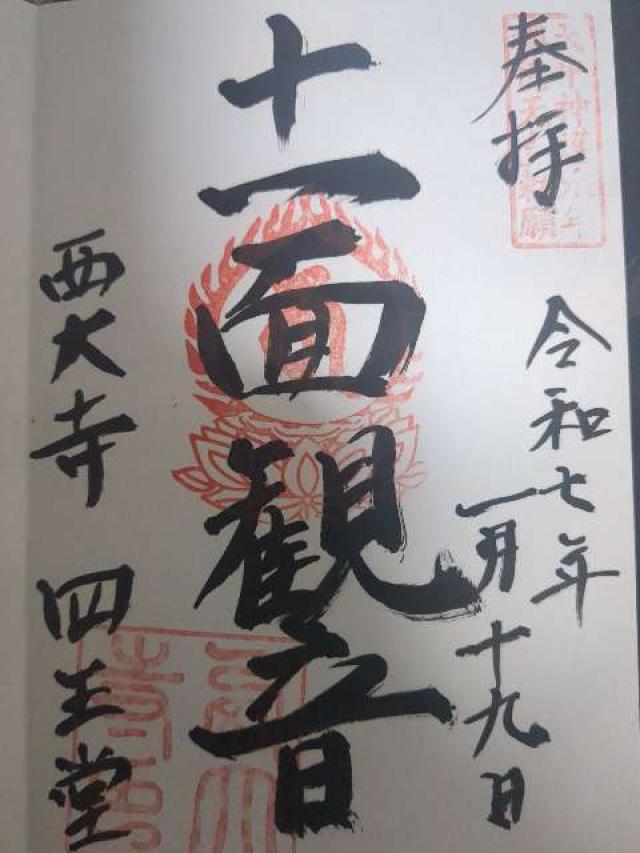 奉拝
令和七年
一月十九日
十一面観音
西大寺 四王堂